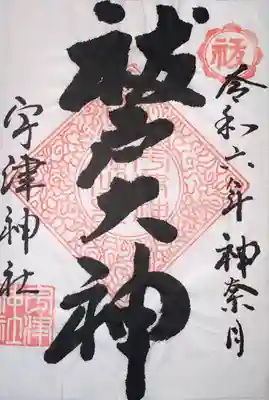 令和六年神奈月
祓
祓戸大神
宇津神社
宇津神社